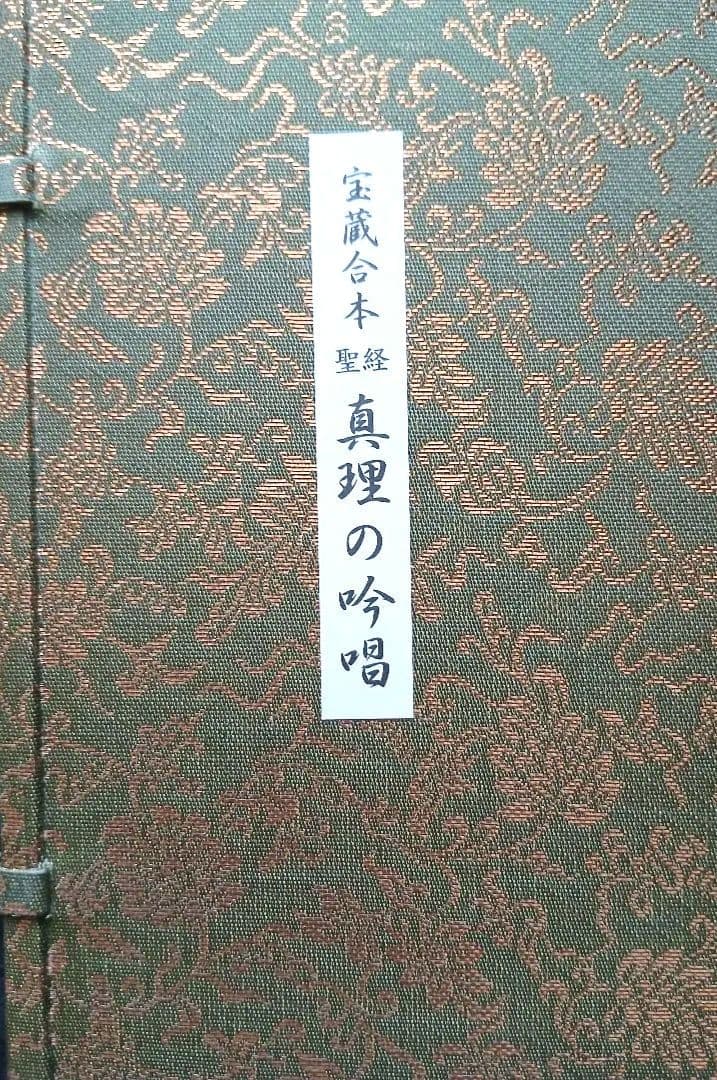 宝蔵合本
聖経
真理の吟唱